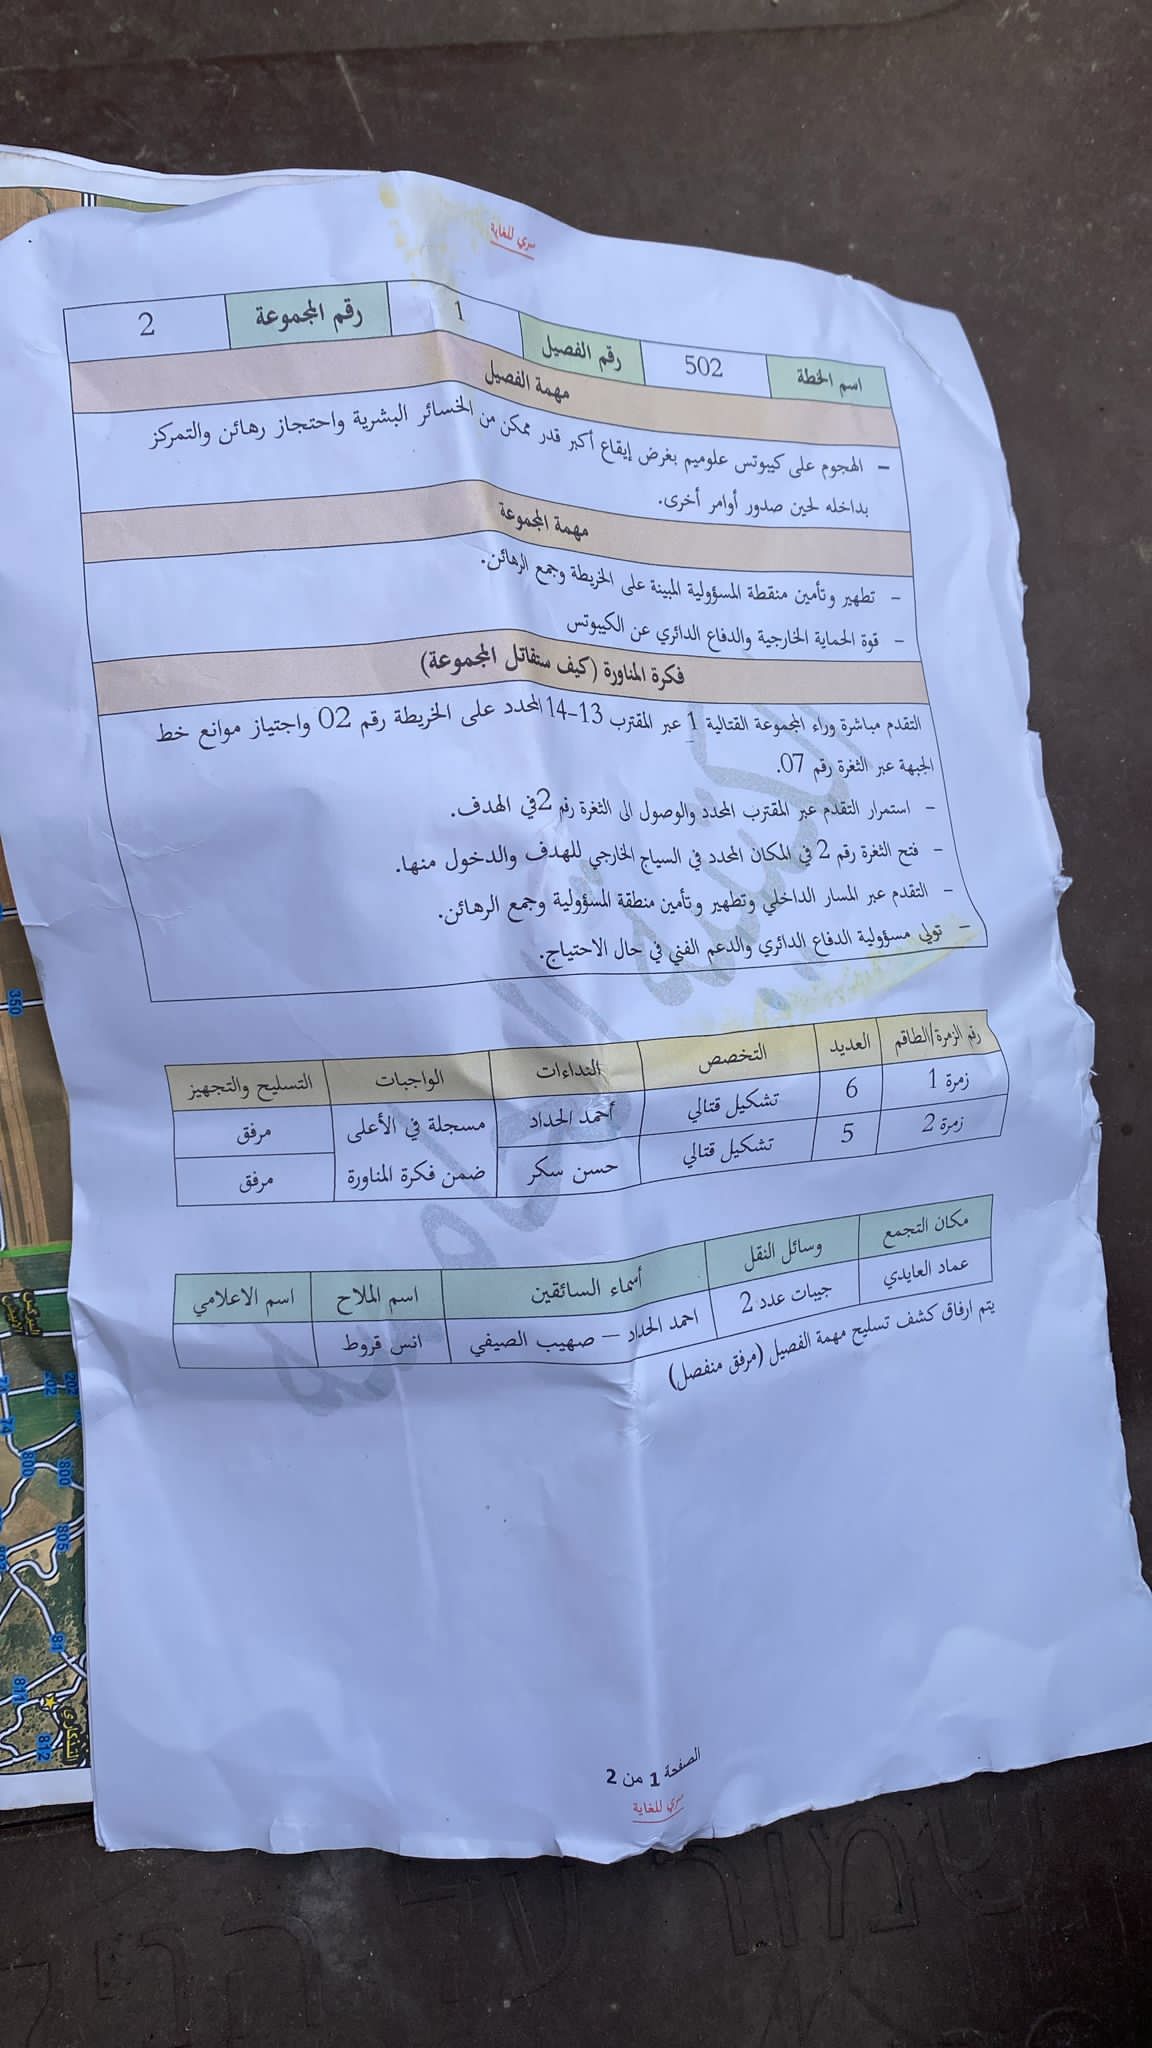 سري للغاية
اسم الخطة 502 رقم الفصيل 1 رقم المجموعة 2
مهمة الفصيل
– الهجوم على كيبوتس علوميم بغرض إيقاع أكبر قدر ممكن من الخسائر البشرية واحتجاز رهائن والتمركز
بداخله لحين صدور أوامر أخرى.
مهمة المجموعة
– تطهير وتأمين منقطة المسؤولية المبينة على الخريطة وجمع الرهائن.
– قوة الحماية الخارجية والدفاع الدائري عن الكيبوتس
فكرة المناورة (كيف ستقاتل المجموعة)
التقدم مباشرة وراء المجموعة القتالية 1 عبر المقترب 13-14 المحدد على الخريطة رقم 02 واجتياز موانع خط
الجبهة عبر الثغرة رقم 07.
– استمرار التقدم عبر المقترب المحدد والوصول الى الثغرة رقم 2في الهدف.
– فتح الثغرة رقم 2 في المكان المحدد في السياج الخارجي للهدف والدخول منها.
– التقدم عبر المسار الداخلي وتطهير وتأمين منطقة المسؤولية وجمع الرهائن.
– تولي مسؤولية الدفاع الدائري والدعم الفني في حال الاحتياج.
رقم الزمرة/الطاقم العديد التخصص النداءات الواجبات التسليح والتجهيز
زمرة 1 6 تشكيل قتالي أحمد الحداد مسجلة في الأعلى مرفق
زمرة 2 5 تشكيل قتالي حسن سكر ضمن فكرة المناورة مرفق
مكان التجمع وسائل النقل أسماء السائقين اسم الملاح اسم الاعلامي
عماد العايدي جيبات عدد 2 احمد الحداد – صهيب الصيفي انس قروط
يتم ارفاق كشف تسليح مهمة الفصيل (مرفق منفصل)
الصفحة 1 من 2
سري للغاية
350
202
202
74
800
800
805
81
811
812